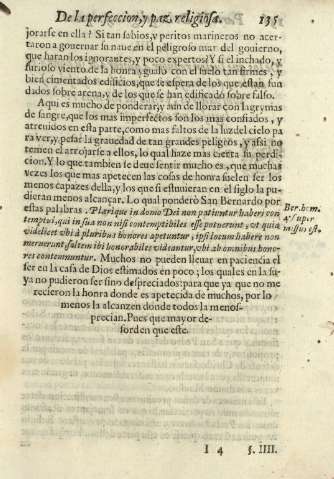 De la perfeccion, y paz religiosa. 135
jorarse en ella? Si tan sabios, y peritos marineros no acer-
taron a gouernar su naue en el peligroso mar del gouierno,
que haran los ignorantes, y poco expertos? Y si el inchado, y
furioso viento de la honra y gusto con el suelo tan firmes, y
bien cimentados edificios, que se espera de los que estan fun
dados sobre arena, y de los que se han edificado sobre falso.
Aqui es mucho de ponderar, y aun de llorar con lagrymas
de sangre, que los mas imperfectos son los mas confiados, y
atreuidos en esta parte, como mas faltos de la luz del cielo pa
ra ver, y pesar la grauedad de tan grandes peligros, y assi no
temen el arrojarse a ellos, lo qual haze mas cierta su perdi-
cion. Y lo que tambien se deue sentir mucho es, que muchas
vezes los que mas apetecen las cosas de honra suelen ser los
menos capazes della, y los que si estuuieran en el siglo la pu
dieran menos alcançar. Lo qual ponderò San Bernardo por
estas palabras. Plerique in domo Dei non patiuntur haberi con
temptoi, qui in sua non nisi contemptibiles esse potuerunt, et quia
videlicet vbi à pluribus honores apetuntur, ipsi locum habere non
meruerunt, saltem ibi honorabiles videantur, vbi ab omnibus hono-
res contemnuntur. Muchos no pueden lleuar en paciencia el
ser en la casa de Dios estimados en poco; los quales en la su-
ya no pudieron ser sino despreciados: para que ya que no me
recieron la honra donde es apetecida de muchos, por lo
menos la alcanzen donde todos la menos-
precian. Pues que mayor de-
sorden que este.
Ber. hom.
4. super
missus est.
I 4 §. IIII.